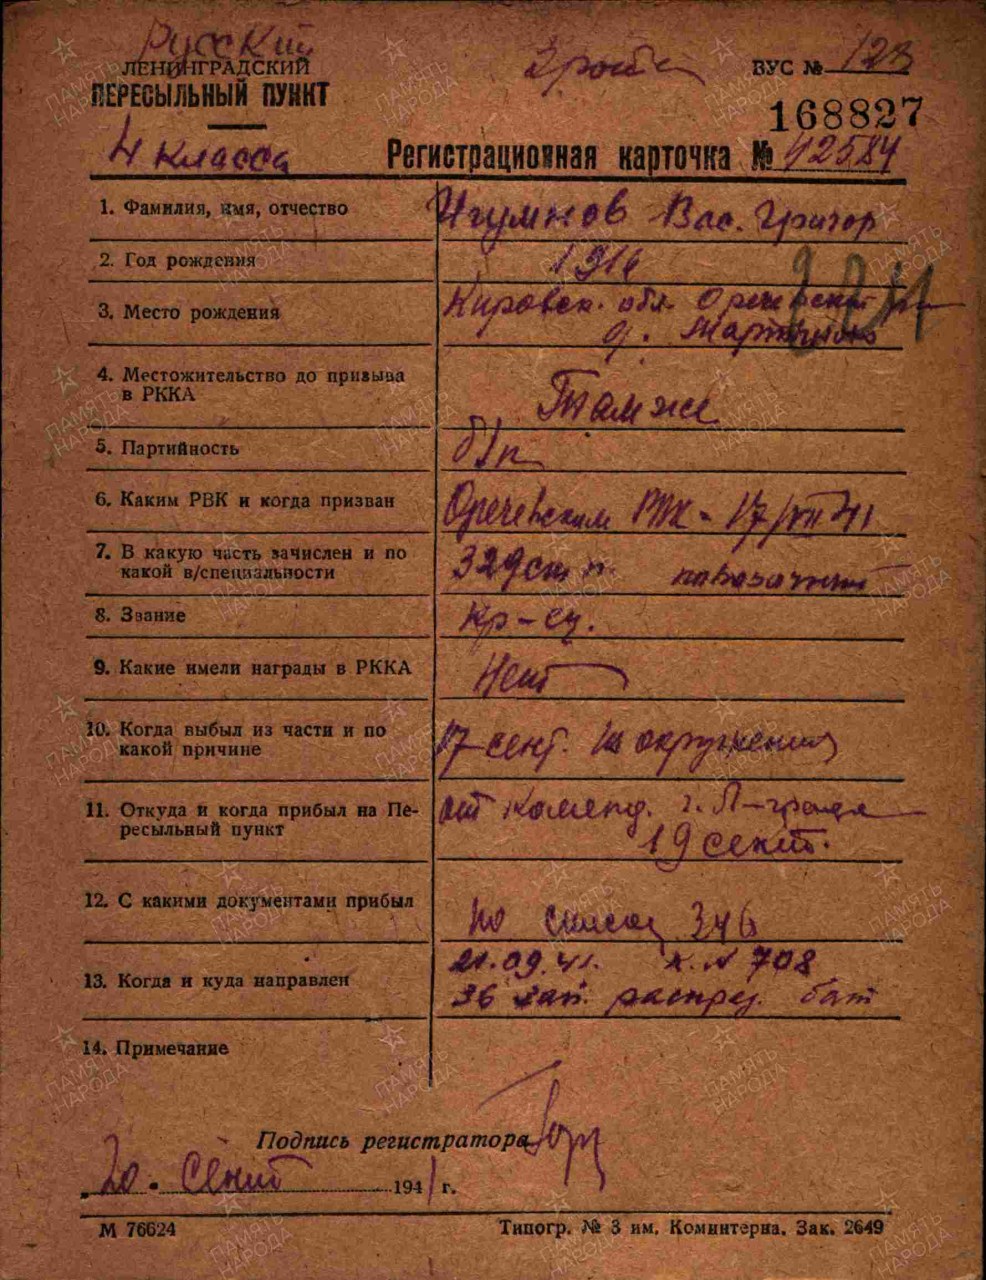 Русский
ЛЕНИНГРАДСКИЙ
ПЕРЕСЫЛЬНЫЙ ПУНКТ
4 класса
2 рота
ВУС № 123
168827
Регистрационная карточка № 42584
1. Фамилия, имя, отчество Игумнов Вас. Григор
2. Год рождения 1916
3. Место рождения Кировск. обл. Оричевский
д.
4. Местожительство до призыва
в РККА
Там же
5. Партийность б/п
6. Каким РВК и когда призван Оречевским РВК - 17/VII 41
7. В какую часть зачислен и по
какой в/специальности
329
8. Звание кр-ец.
9. Какие имели награды в РККА Нет
10. Когда выбыл из части и по
какой причине
17 сент. Из окружения
11. Откуда и когда прибыл на Пе-
ресыльный пункт
от Коменд. г. Л-града
19 сент.
12. С какими документами прибыл по списку 346
13. Когда и куда направлен
21.09.41. к. № 708
36 зап. распред. бат
14. Примечание
Подпись регистратора
"20" сент 1941 г.
М 76624
Типогр. № 3 им. Коминтерна. Зак. 2649
ПАМЯТЬ НАРОДА